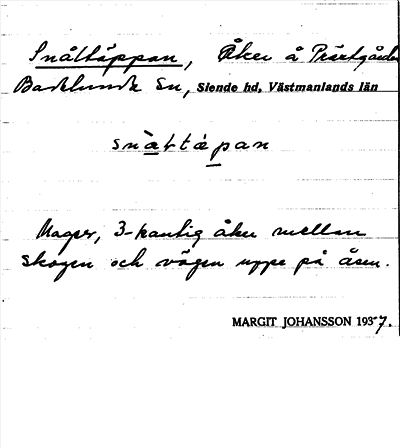 Snåltäppan, Åker å Prästgården
Badelunda Sn, Siende hd, Västmanlands län
snàltápan
Mager, 3-kantig åker mellan
skogen och vägen uppe på åsen.
MARGIT JOHANSSON 1937.